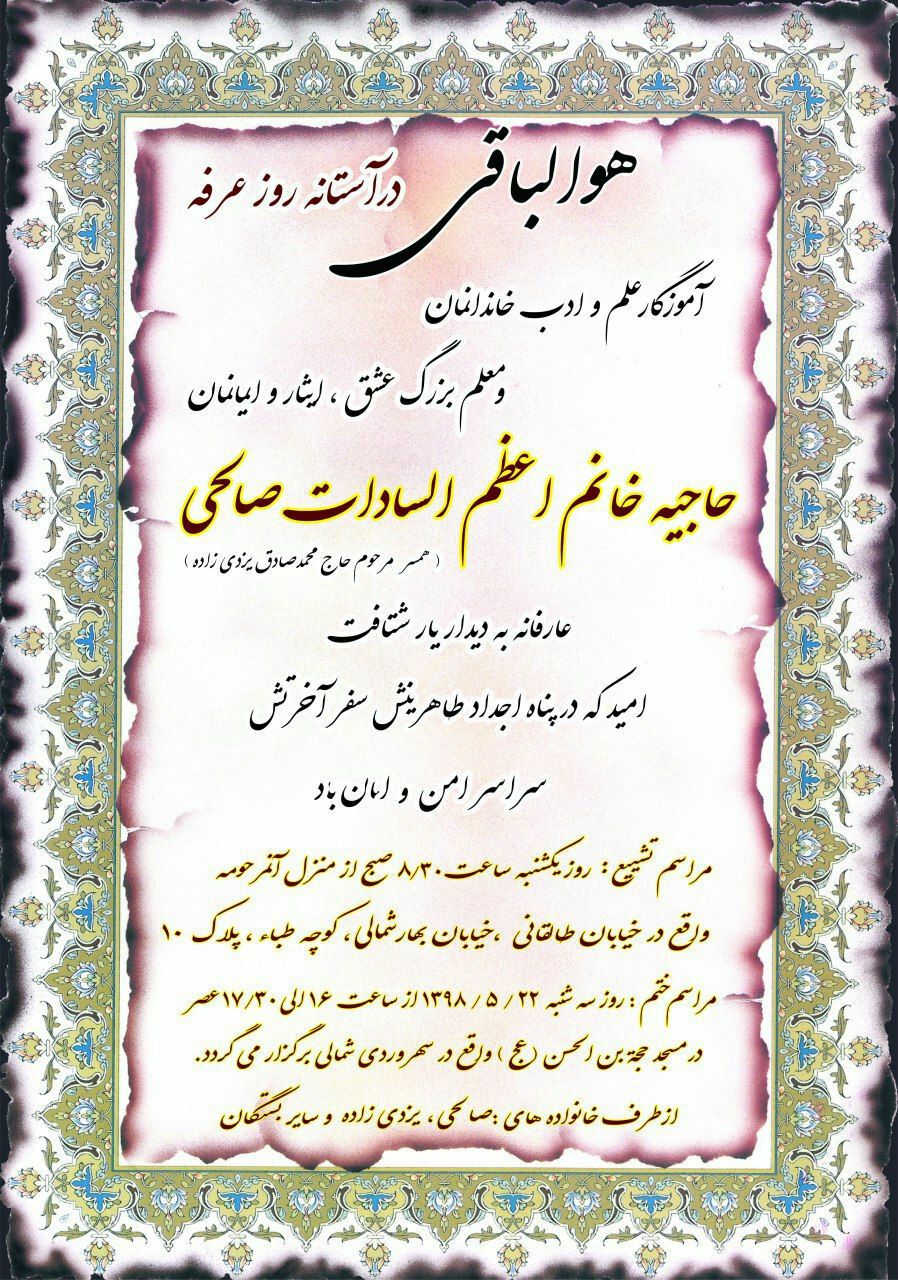 هوالباقی
درآستانه روز عرفه
آموزگار علم و ادب خاندانمان
و معلم بزرگ عشق ، ایثار و ایمانمان
حاجیه خانم اعظم السادات صالحی
( همسر مرحوم حاج محمدصادق یزدی زاده )
عارفانه به دیدار یار شتافت
امید که در پناه اجداد طاهرینش سفر آخرتش
سراسر امن و امان باد
مراسم تشییع : روز یکشنبه ساعت ۸٫۳۰ صبح از منزل آنمرحومه
واقع در خیابان طالقانی ،خیابان بهارشمالی، کوچه طباء ، پلاک ۱۰
مراسم ختم : روز سه شنبه ۲۲ / ۵ / ۱۳۹۸ از ساعت ۱۶ الی ۱۷٫۳۰ عصر
در مسجد حجة بن الحسن (عج ) واقع در سهروردی شمالی برگزار می گردد.
از طرف خانواده های :صالحی ، یزدی زاده و سایر بستگان